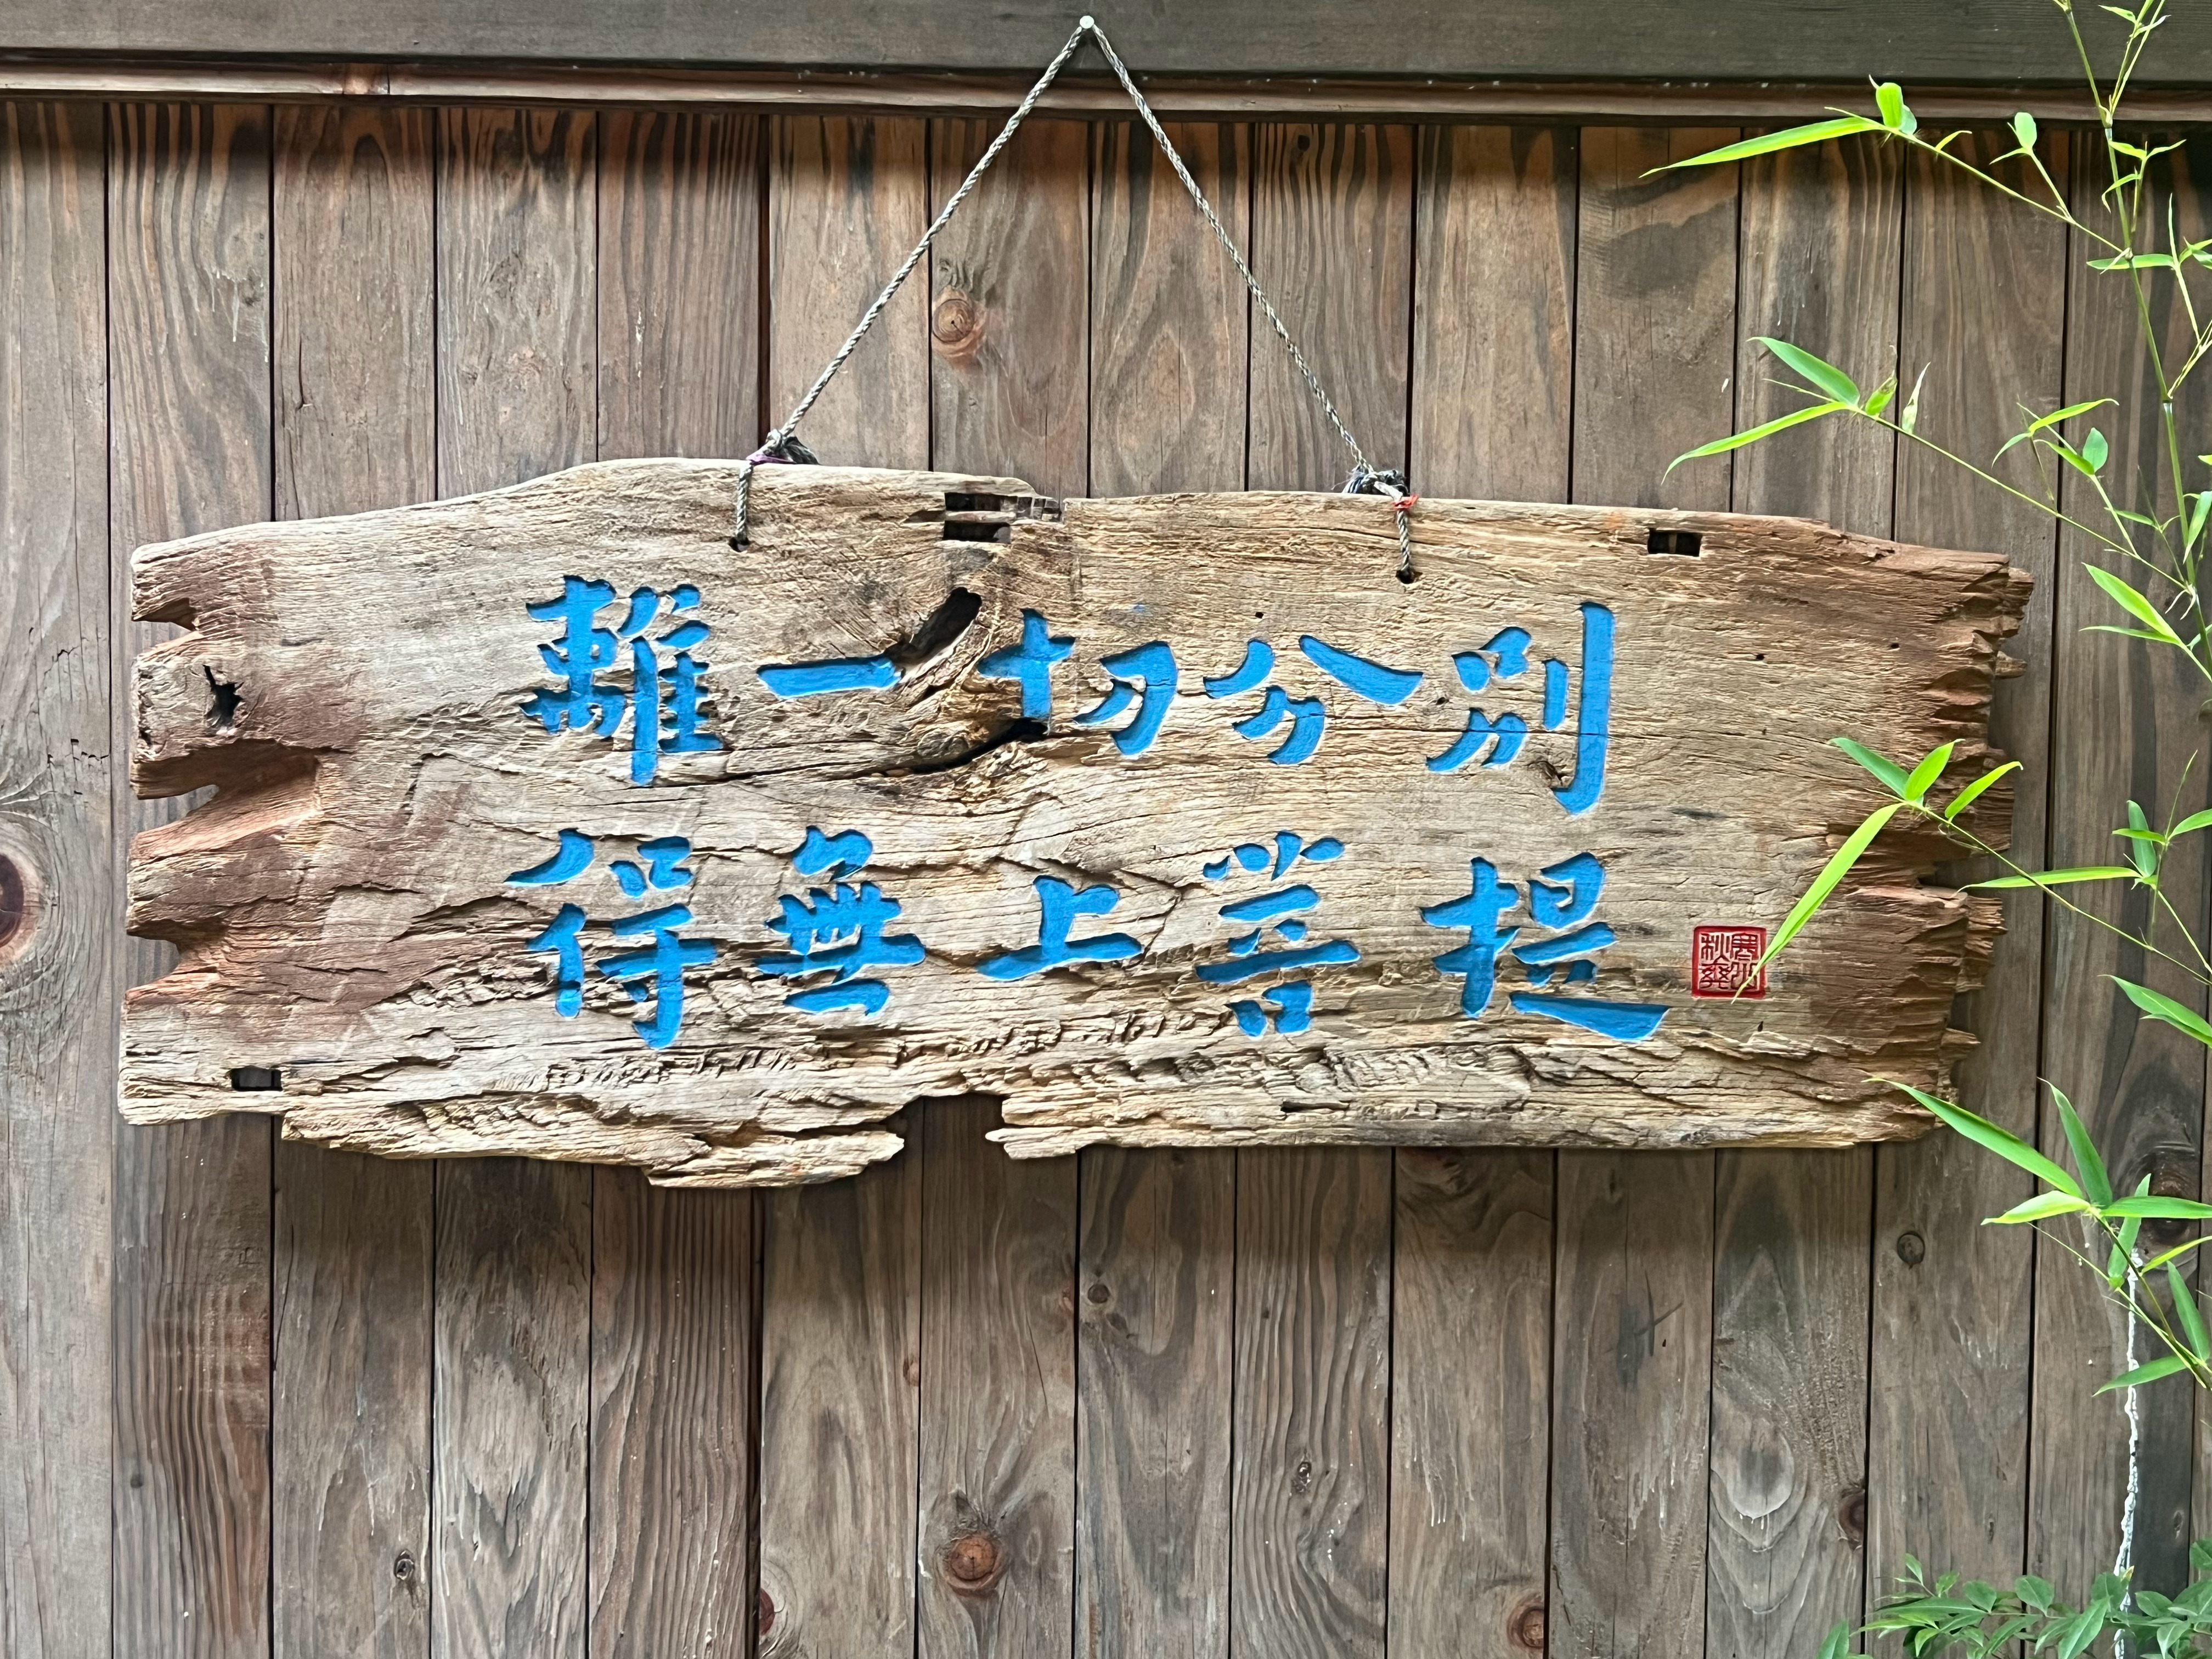 離一切分別
得無上菩提